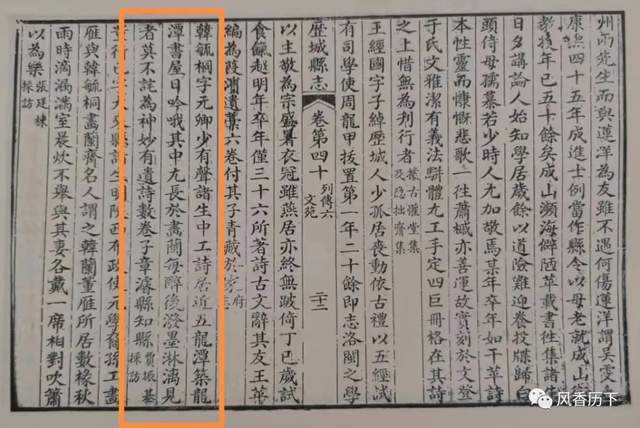 州而先生而與蓮洋為友雖不遇何傷蓮洋謂吳雯
康熙四十五年成進士例當作縣令以母老就成山
教授年已五十餘矣成山瀕海僻陋草載書徃集諸生
日夕講論人始知學居歲餘以道險難迎養投牒歸白
頭侍母孺慕若少時人尤加敬焉某年卒年如干草詩
本性靈而慷慨悲歌一往蕭槭亦善運故實刻於文登
于氏文雅潔有義法騈體尤工手定四巨冊格在其詩
之上惜無為刋行者據古懽堂集
及隐拙齋集
王經國字子綽歷城人少孤居喪動依古禮以五經試
有司學使周龍甲拔置第一年二十餘即志洛閩之學
歷城縣志 卷第四十 列傳六
文苑 二十二
以主敬為宗盛暑衣冠雖燕居亦終無跛倚丁巳歲試
食餼越明年卒年僅三十六所著詩古文辭其友王苹
編為陔遺藁六卷付其子青藏於家府
韓毓桐字元卿少有聲諸生中工詩居近五龍潭築龍
潭書屋日吟哦其中尤長於畫蘭每醉後潑墨淋漓見
者莫不詫為神妙有遺詩數卷子章濬縣知縣賈振基
採訪
董行己字大來縣諸生明陝西布政使元學裔孫工畫
雁與韓毓桐畫蘭齊名人謂之韓蘭董雁所居數椽秋
雨時滴漏滿室晨炊不舉與其妻各戴一席相對吹簫
以為樂張廷棟
採訪
风香历下